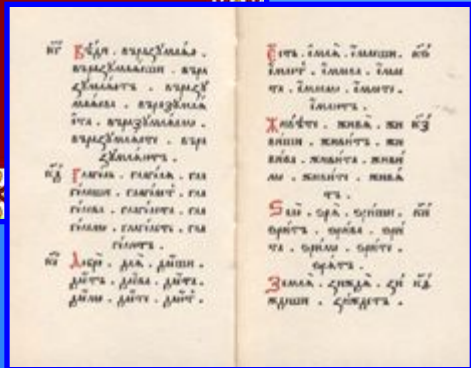 к҃г Вѣди . въразꙋмлѧю .
въразꙋмлѧеши . въра
зꙋмлѧетъ . въразꙋ
млѧева . въразꙋмлѧ
ета . въразꙋмлѧемо .
въразꙋмлѧете . въра
зꙋмлѧютъ .
к҃д Глаголь . глаголѧ . гла
голеши . глаголет . гла
голева . глаголета . гла
големо . глаголете . гла
голютъ .
к҃е Добро . даѧ . даеши .
даетъ . даева . даета .
даемо . даете . дают .
Есть . емлѧ . емлеши .
емлет . емлева . емле
та . емлемо . емлете .
емлютъ .
Живѣте . живѧ . жи к҃з
виши . живитъ . жи
вива . живита . живи
мо . живите . живѧ
тъ .
Ѕѣло . ѕрѧ . ѕриши . к҃и
ѕритъ . ѕрива . ѕри
та . ѕримо . ѕрите .
ѕрѧтъ .
Землѧ . зиждѧ . зи
ждиши . зиждетъ .